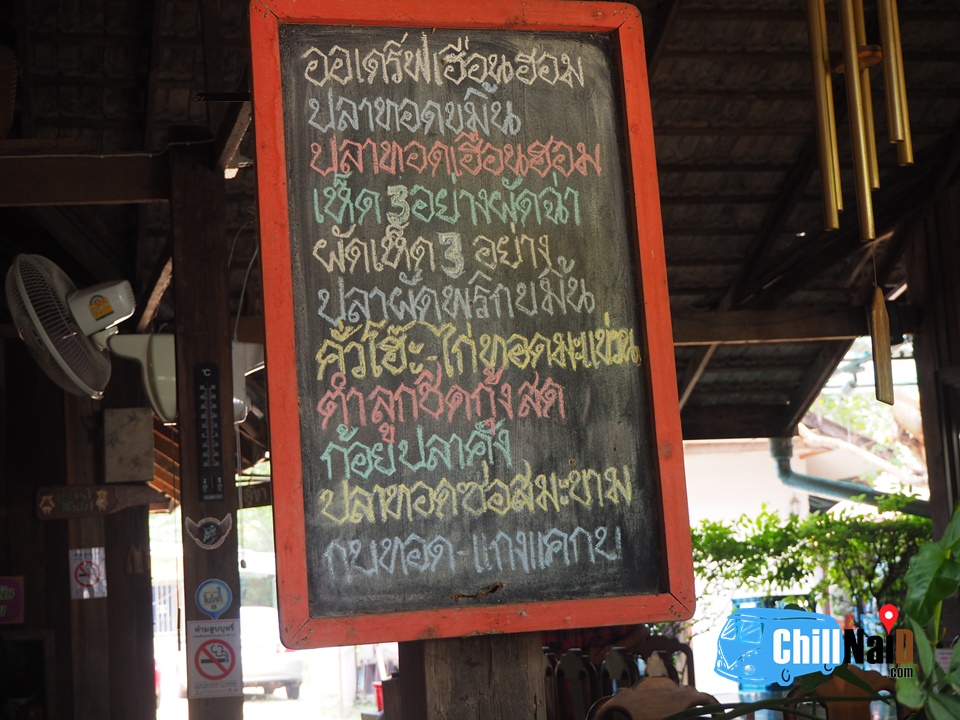 ออเดร์ฟเฮือนฮอม
ปลาทอดขมิ้น
ปลาทอดเฮือนฮอม
เห็ด 3 อย่างผัดฉ่า
ผัดเห็ด 3 อย่าง
ปลาผัดพริกขมิ้น
คั่วโฮ๊ะ-ไก่ทอดมะแขว่น
ตำลูกชิดกุ้งสด
ก้อยปลาคัง
ปลาทอดซอสมะขาม
กบทอด-แกงแคกบ
°C
ห้ามสูบบุหรี่
ChillNaiD
.com